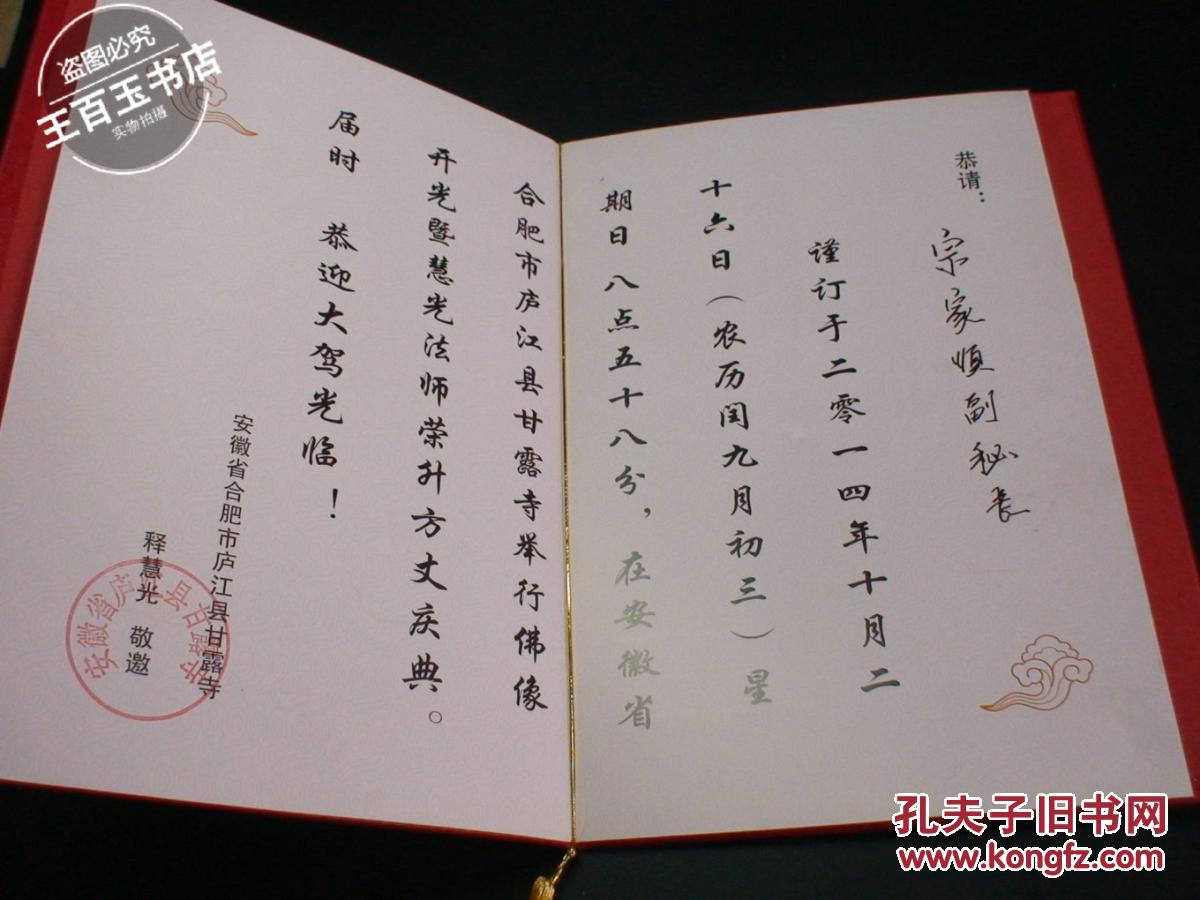 恭请：
宗家顺副秘长
谨订于二零一四年十月二
十六日（农历闰九月初三）星
期日八点五十八分，在安徽省
合肥市庐江县甘露寺举行佛像
开光暨慧光法师荣升方丈庆典。
届时 恭迎大驾光临！
安徽省合肥市庐江县甘露寺
释慧光 敬邀
安徽省庐江县甘露寺
盗图必究
王百玉书店
实物拍摄
孔夫子旧书网
www.kongfz.com